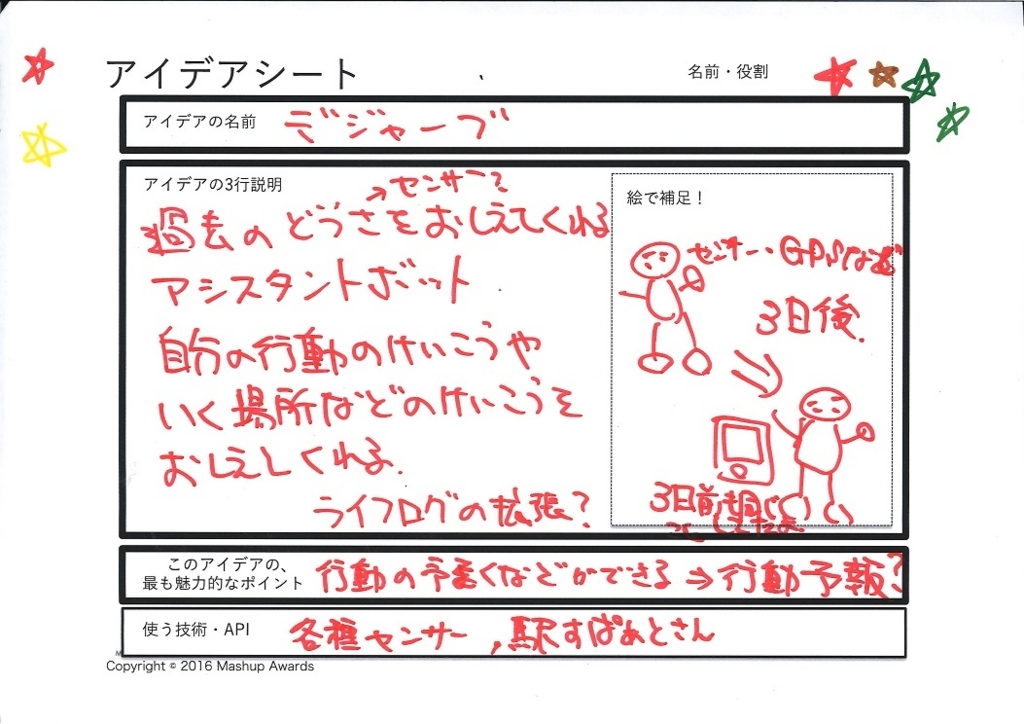 アイデアシート
名前・役割
アイデアの名前
デジャーブ
アイデアの3行説明
→センサー?
過去のどうさをおしえてくれる
アシスタントボット
自分の行動のけいこうや
いく場所などのけいこうを
おしえてくれる.
ライフログの拡張?
絵で補足!
センサー・GPSなど
3日後.
3日前
このアイデアの、
最も魅力的なポイント
行動の予そくなどができる→行動予報?
使う技術・API
各種センサー,駅すぱあとさん
Copyright © 2016 Mashup Awards